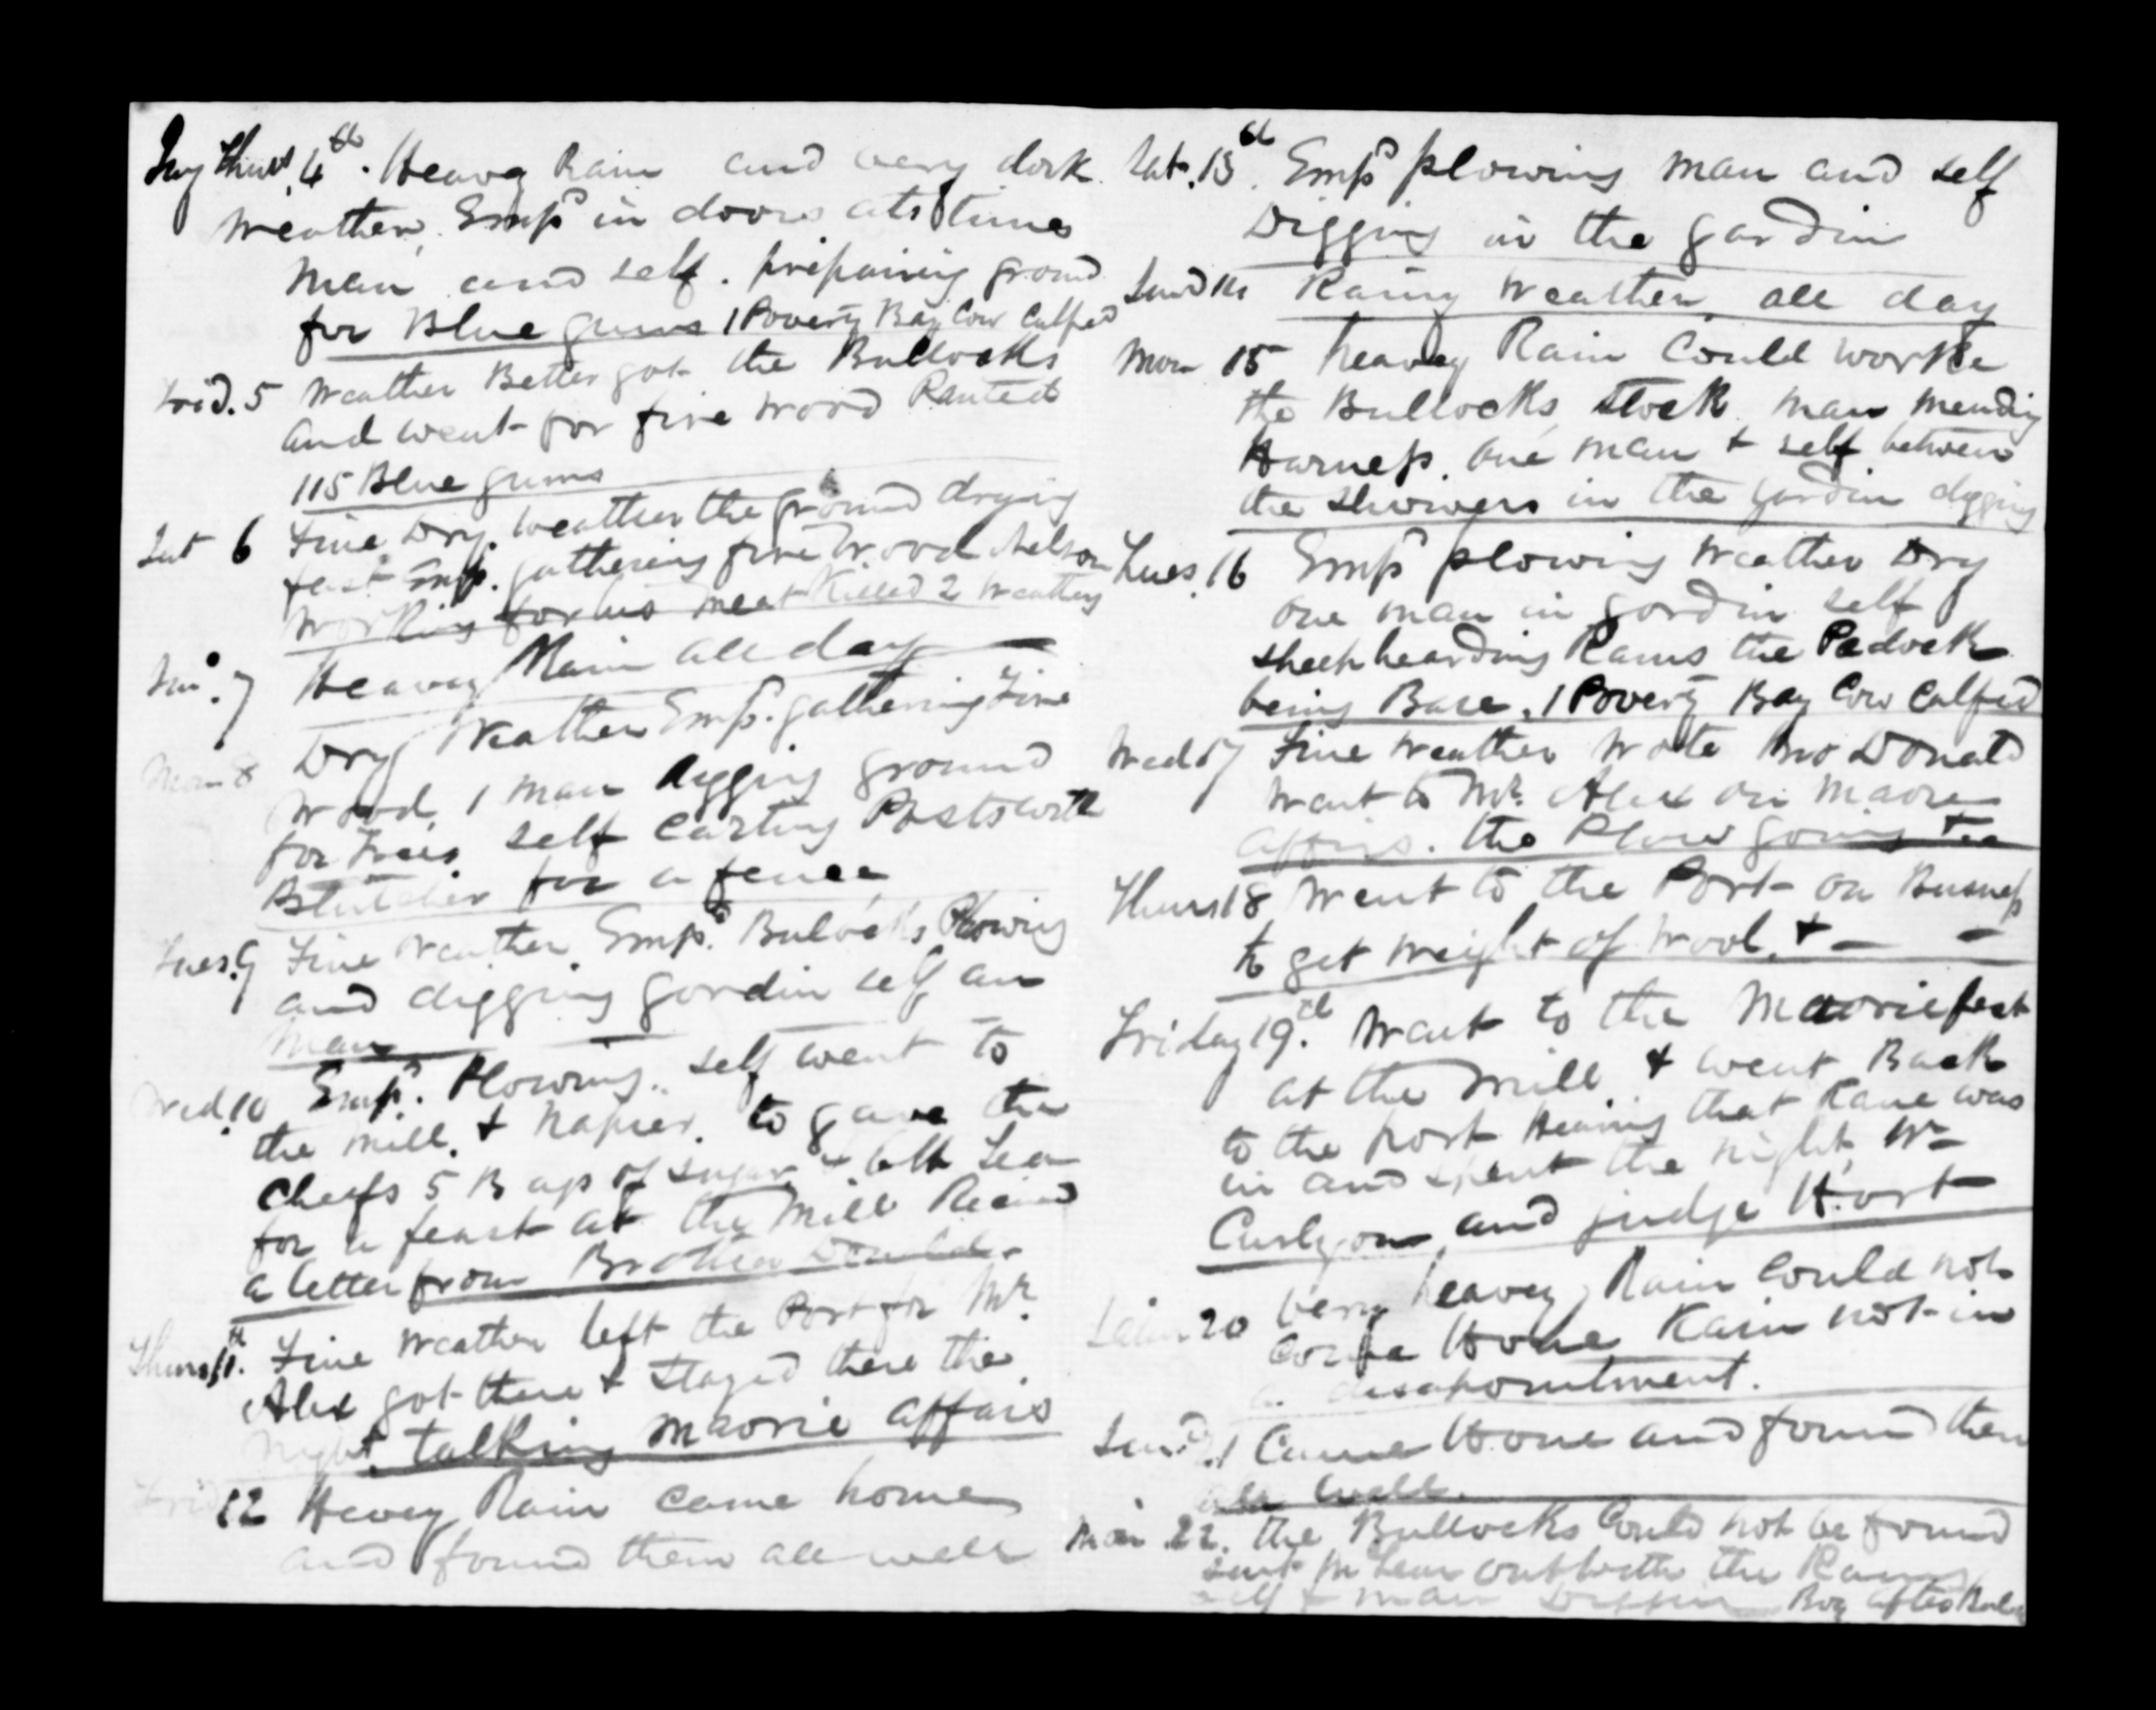 Thurs 4th. Heavey Rain and very dark
Weather, Empd in doors at times
Man and self. prepairing ground
for Blue gums 1 Poverty Bay Cow Calfed
Frid. 5 Weather Better got the Bullocks
and went for fire wood Planted
115 Blue gums
Sat 6 Fine Dry weather the ground drying
fast Empd. gathering fire wood Nelson
Working for his meat Killed 2 weathers
Sun. 7 Heavey Rain all day
Mon 8 Dry Weather Empd. gathering Fire
Wood, 1 man digging ground
for Trees self Carting Posts
for a fence
Tues. 9 Fine Weather Empd. Bulocks Plowing
and digging gordin self an
Man
Wed. 10 Empd. Plowing. self went to
the Mill, & Napier. to gave the
Cheefs 5 Bags of sugar & Tea
for a feast at the Mill Recived
a letter from Brother Donald.
Thurs 11th. Fine Weather left the Port for Mr.
Alex got there & Stayed there the
Night, talking Maorie affairs
Frid 12 Hevey Rain came home
and found them all well
Sat. 13th. Empd plowing man and self
Digging in the gardin
Sund 14 Rainy Weather, all day
Mon 15 heavey Rain Could worke
the Bullocks, stock man mending
Harness, one man & self between
the Showers in the gordin digging
Tues. 16 Empd plowing Weather Dry
one man in gordin self
sheephearding Rams the Padock
being Bare, 1 Poverty Bay Cow Calfed
Wed 17 Fine Weather Wrote Bro Donald
Went to Mr. Alex on Maorie
affairs. the Plow going
Thurs 18 Went to the Port on Busness
to get weight of Wool, &
Friday 19th. Went to the Maorie feast
at the Mill & went Back
to the port Hearing that Kane was
in and spent the night, Wm
Curlyon and judge H.ort
20 Very heavey Rain Could not
Come Home Kain not in
a disapointment.
Sund. 21 Came Home and found them
all well.
Mon 22. the Bullocks Could not be found
sent out with the Rams
self & man Digging Boy after